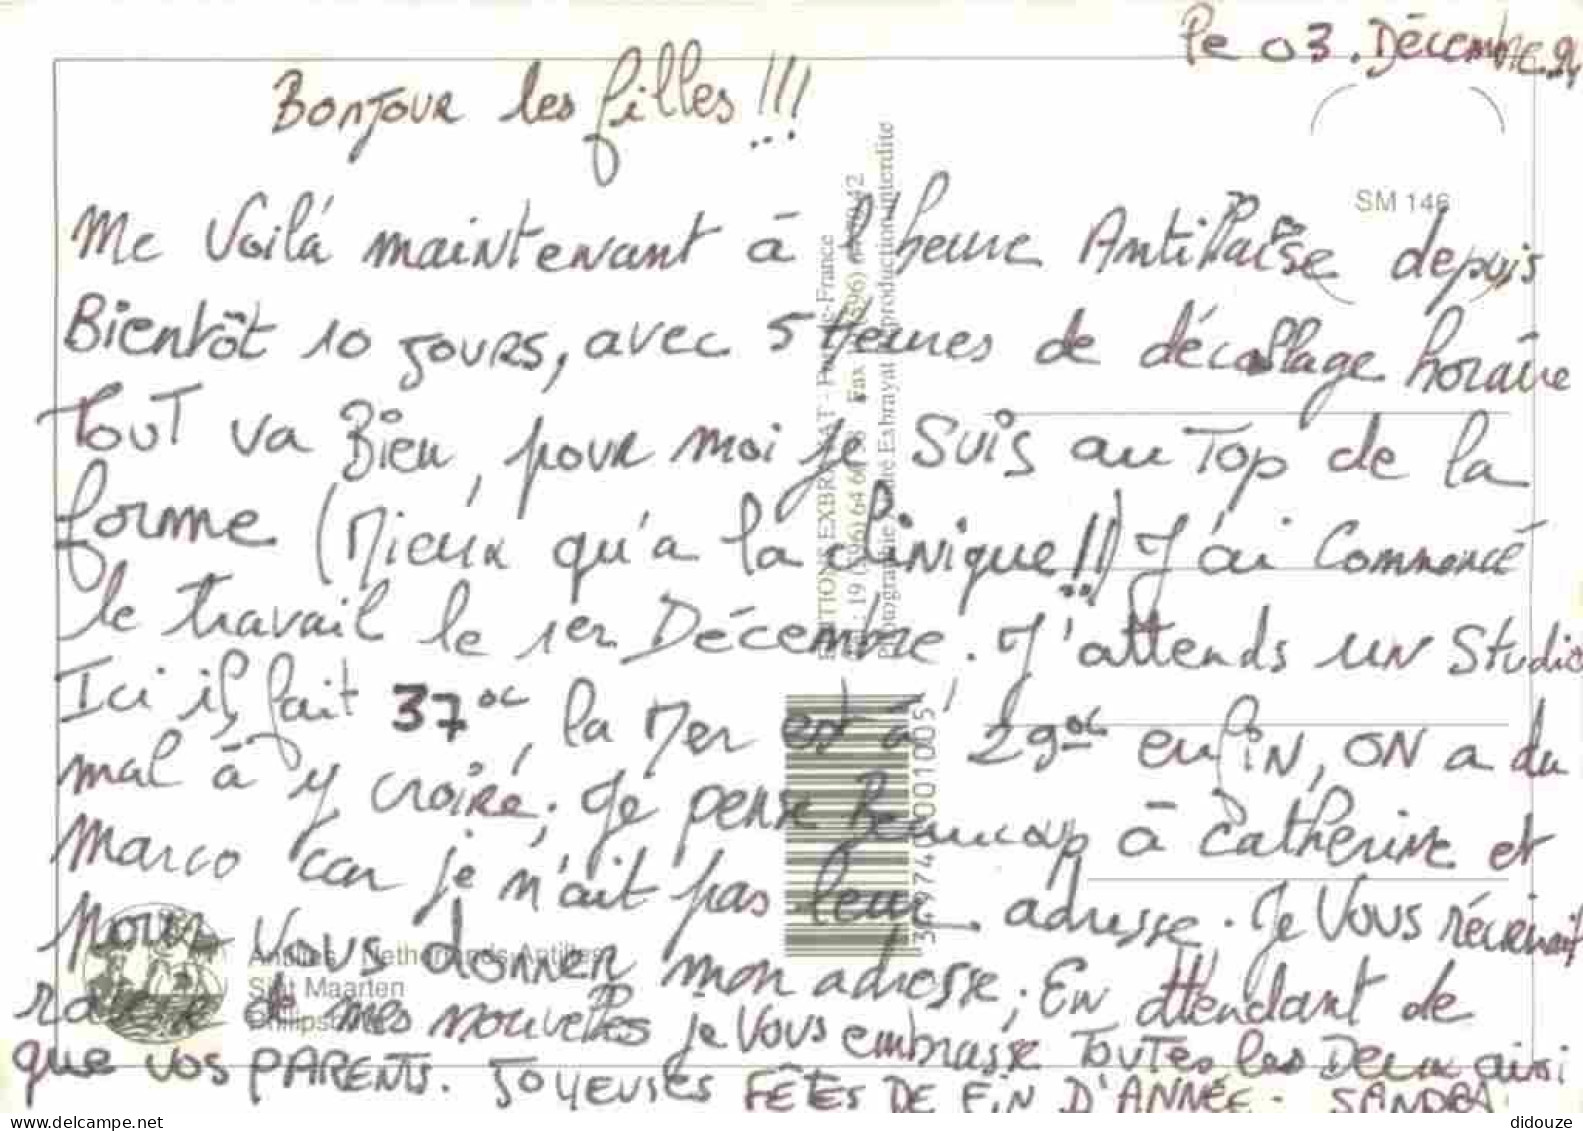 le 03. Décembre 94
Bonjour les filles !!!
SM 146
Me Voilà maintenant à l'heure Antillaise depuis
Bientôt 10 jours, avec 5 Heures de décollage horaire
Tout va Bien, pour moi je suis au Top de la
forme (Mieux qu'a la clinique !!) J'ai Commencé
le travail le 1er Décembre. J'attends un Studio
Ici il fait 37°c, la Mer est à 29°c enfin, on a du
mal à y croire. Je pense Beaucoup à Catherine et
Marco car je n'ait pas leur adresse. Je Vous
pour vous donner mon adresse, En attendant de
de mes nouvelles je Vous embrasse Toutes les Deux ainsi
que vos PARENTS. JOYEUSES FÊTES DE FIN D'ANNÉE - SANDRA
Antilles - Netherlands Antilles
Sint Maarten
EDITIONS EXBRAYAT - Fort-de-France
19 (596) 64 60 58 Fax 19 (596)
Photographie André Exbrayat Reproduction interdite
didouze